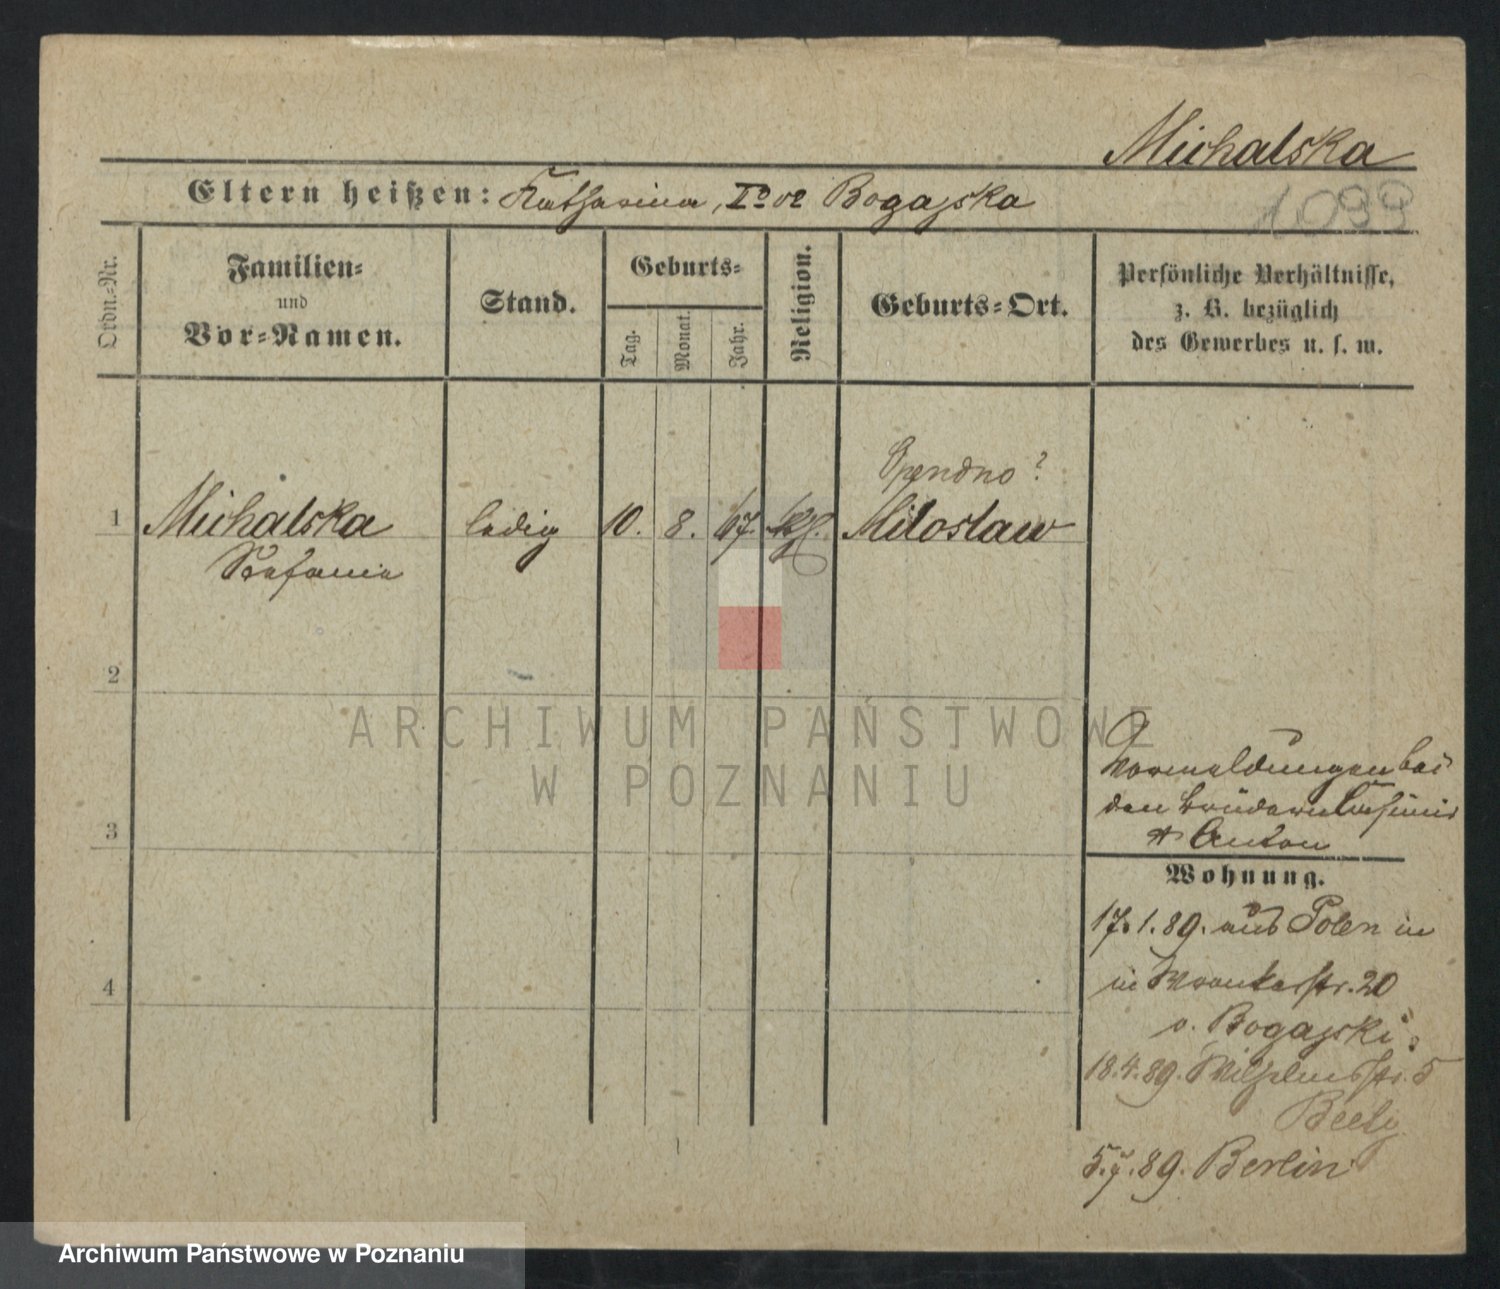 Michalska
Eltern heißen: Katharina, Io vo Bogajska
1099
Ordn.-Nr.
Familien-
und
Vor-Namen.
Stand.
Geburts-
Tag.
Monat.
Jahr.
Religion.
Geburts-Ort.
Persönliche Verhältnisse,
z. B. bezüglich
des Gewerbes u. s. w.
?
1 Michalska ledig 10. 8. 67. Miloslaw
Stefania
2
3
4
ARCHIWUM PAŃSTWOWE
W POZNANIU
Vormeldungen bei
den Brüdern Casimir
Anton
Wohnung.
17.1.89. aus Polen in
in Wronkerstr. 20
b. Bogajski
18.4.89. Wilhelmsstr. 5
Beely
5.7.89. Berlin
Archiwum Państwowe w Poznaniu